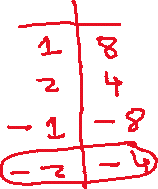 1 8
2 4
-1 -8
-2 -4